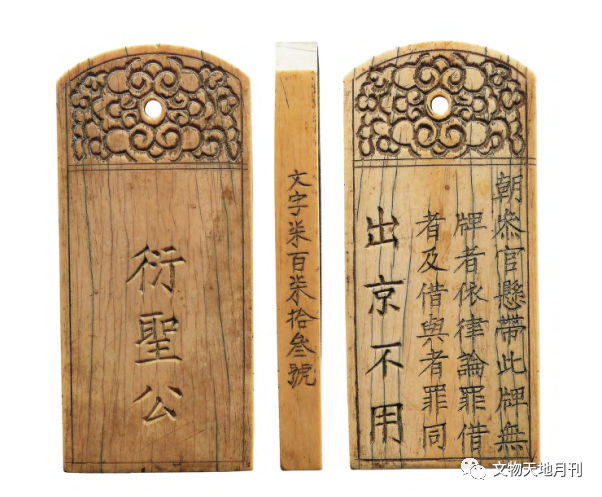 衍聖公
文字柒百柒拾叄號
朝叅官懸帶此牌無
牌者依律論罪借
者及借與者罪同
出京不用
文物天地月刊